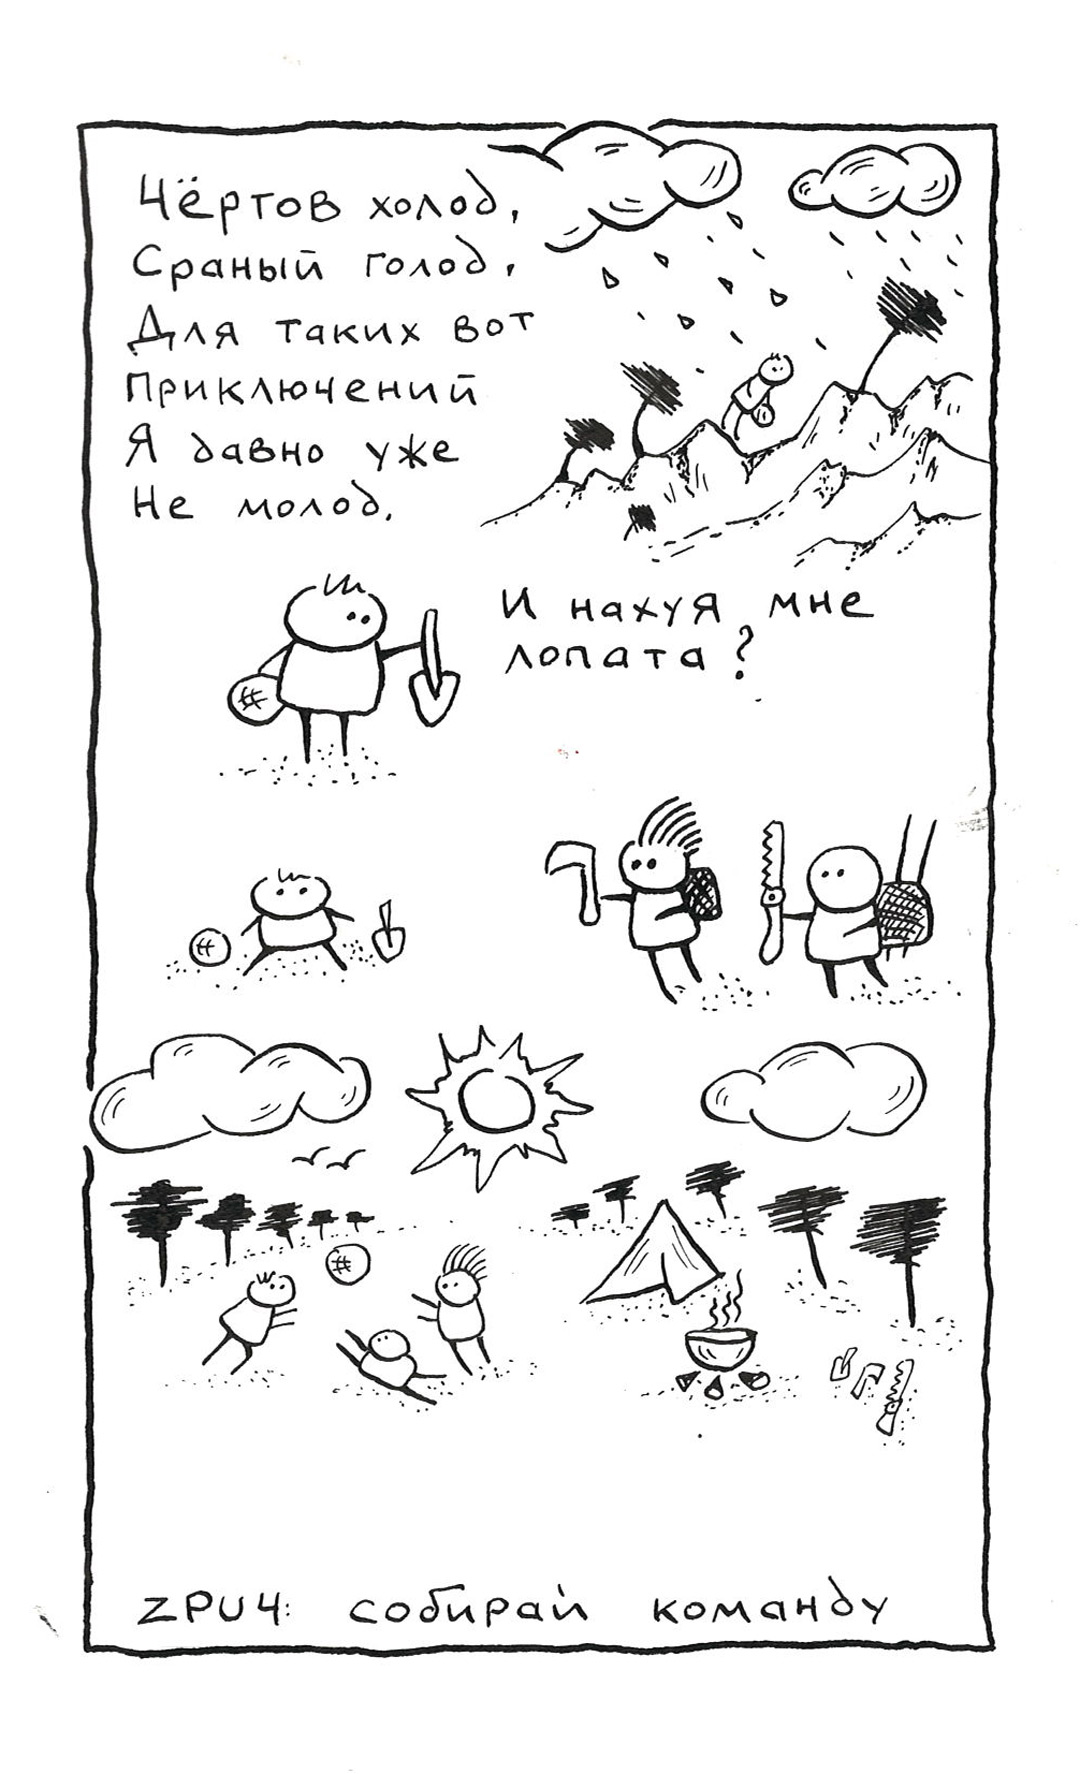 Чёртов холод,
Сраный голод,
Для таких вот
Приключений
Я давно уже
Не молод.
И нахуя мне
лопата?
ZPU4: собирай команду